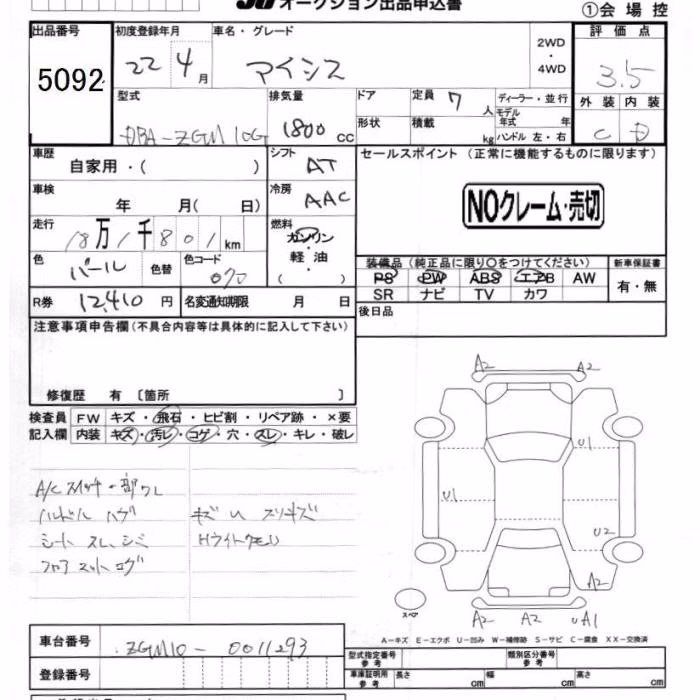 オークション出品申込書
①会場控
出品番号 5092
初度登録年月 22 4月
車名・グレード アイシス
2WD・4WD
評価点 3.5
型式 DBA-ZGM10G
排気量 1800 cc
ドア
形状
定員 7 人
積載 kg
ディーラー・並行
モデル年式 年
ハンドル 左・右
外装 C
内装 D
車歴 自家用・( )
シフト AT
セールスポイント (正常に機能するものに限ります)
車検 年 月( 日)
冷房 AAC
NOクレーム・売切
走行 18万1千801km
燃料 ガソリン
軽油
( )
色 パール
色替
カラーコード 070
装備品 (純正品に限り○をつけてください)
新車保証書
PS PW ABS エアB AW
有・無
SR ナビ TV カワ
R券 12,410 円
名変通知期限 月 日
後日品
注意事項申告欄(不具合内容等は具体的に記入して下さい)
修復歴 有 〔箇所 〕
検査員 FW キズ・飛石・ヒビ割・リペア跡・×要
記入欄 内装 キズ・汚レ・コゲ・穴・スレ・キレ・破レ
A/Cスイッチ一部ワレ
ハンドル ハゲ
キズ U スリキズ
シート スレ、シミ
Hライトクモリ
A2 A2
U1
U1
U2
A2
スペア
A2 A2 UA1
A-キズ E-エクボ U-凹み W-補修跡 S-サビ C-腐食 XX-交換済
車台番号 ZGM10-0011293
登録番号
型式指定番号 参考
類別区分番号 参考
車庫証明用 参考 長さ cm 幅 cm 高さ cm